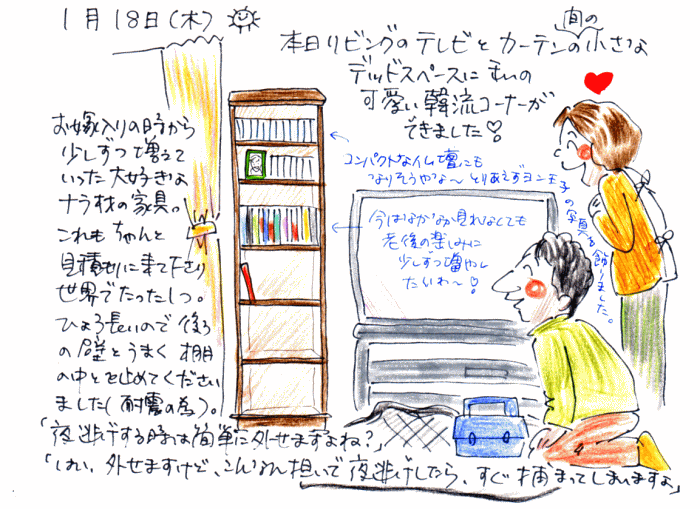 1月18日(木)
本日リビングのテレビとカーテンの間の小さな
デッドスペースに私の
可愛い韓流コーナーが
できました♡
お嫁入りの時から
少しずつ増えて
いった大好きな
ナラ材の家具。
これもちゃんと
見積もりに来て下さり
世界でたった1つ。
ひょろ長いので後ろ
の壁とうまく棚
の中とを止めてください
ました(耐震の為)。
コンパクトな仏壇にも
なりそうやな〜とりあえずヨン王子の写真を飾りました。
今はなかなか見れなくても
老後の楽しみに
少しずつ増やし
たいわ〜♡
「夜逃げする時は簡単に外せますよね?」
「はい、外せますけど、こんなん担いで夜逃げしたら、すぐ捕まってしまいますよ」